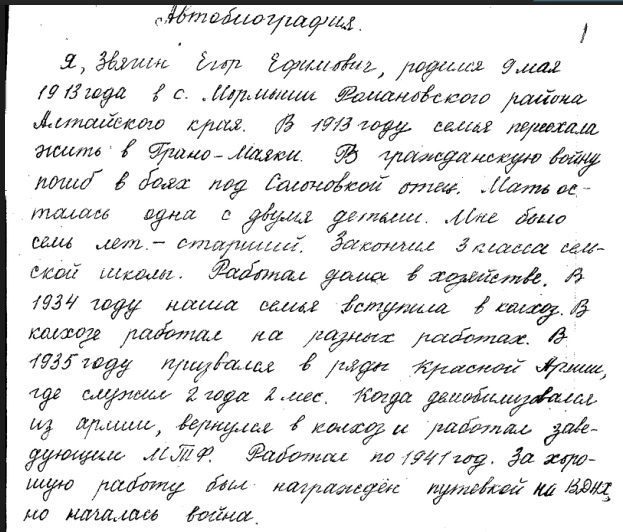 Автобиография.
1
Я, Звягин Егор Ефимович, родился 9 мая
1913 года в с. Мормыши Романовского района
Алтайского края. В 1913 году семья переехала
жить в Грано-Маяки. В гражданскую войну
погиб в боях под Солоновкой отец. Мать ос-
талась одна с двумя детьми. Мне было
семь лет – старший. Закончил 3 класса сель-
ской школы. Работал дома в хозяйстве. В
1934 году наша семья вступила в колхоз. В
колхозе работал на разных работах. В
1935 году призвался в ряды Красной Армии,
где служил 2 года 2 мес. Когда демобилизовался
из армии, вернулся в колхоз и работал заве-
дующим МТФ. Работал по 1941 год. За хоро-
шую работу был награждён путевкой на ВДНХ,
но началась война.